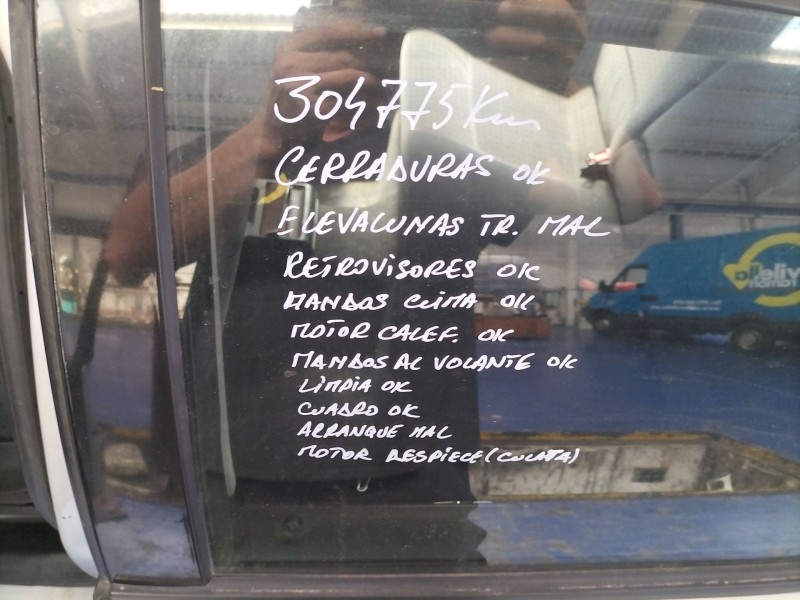 304775 Km
CERRADURAS OK
ELEVALUNAS TR. MAL
RETROVISORES OK
MANDOS CLIMA OK
MOTOR CALEF. OK
MANDOS AL VOLANTE OK
LIMPIA OK
CUADRO OK
ARRANQUE MAL
MOTOR DESPIECE (CULATA)